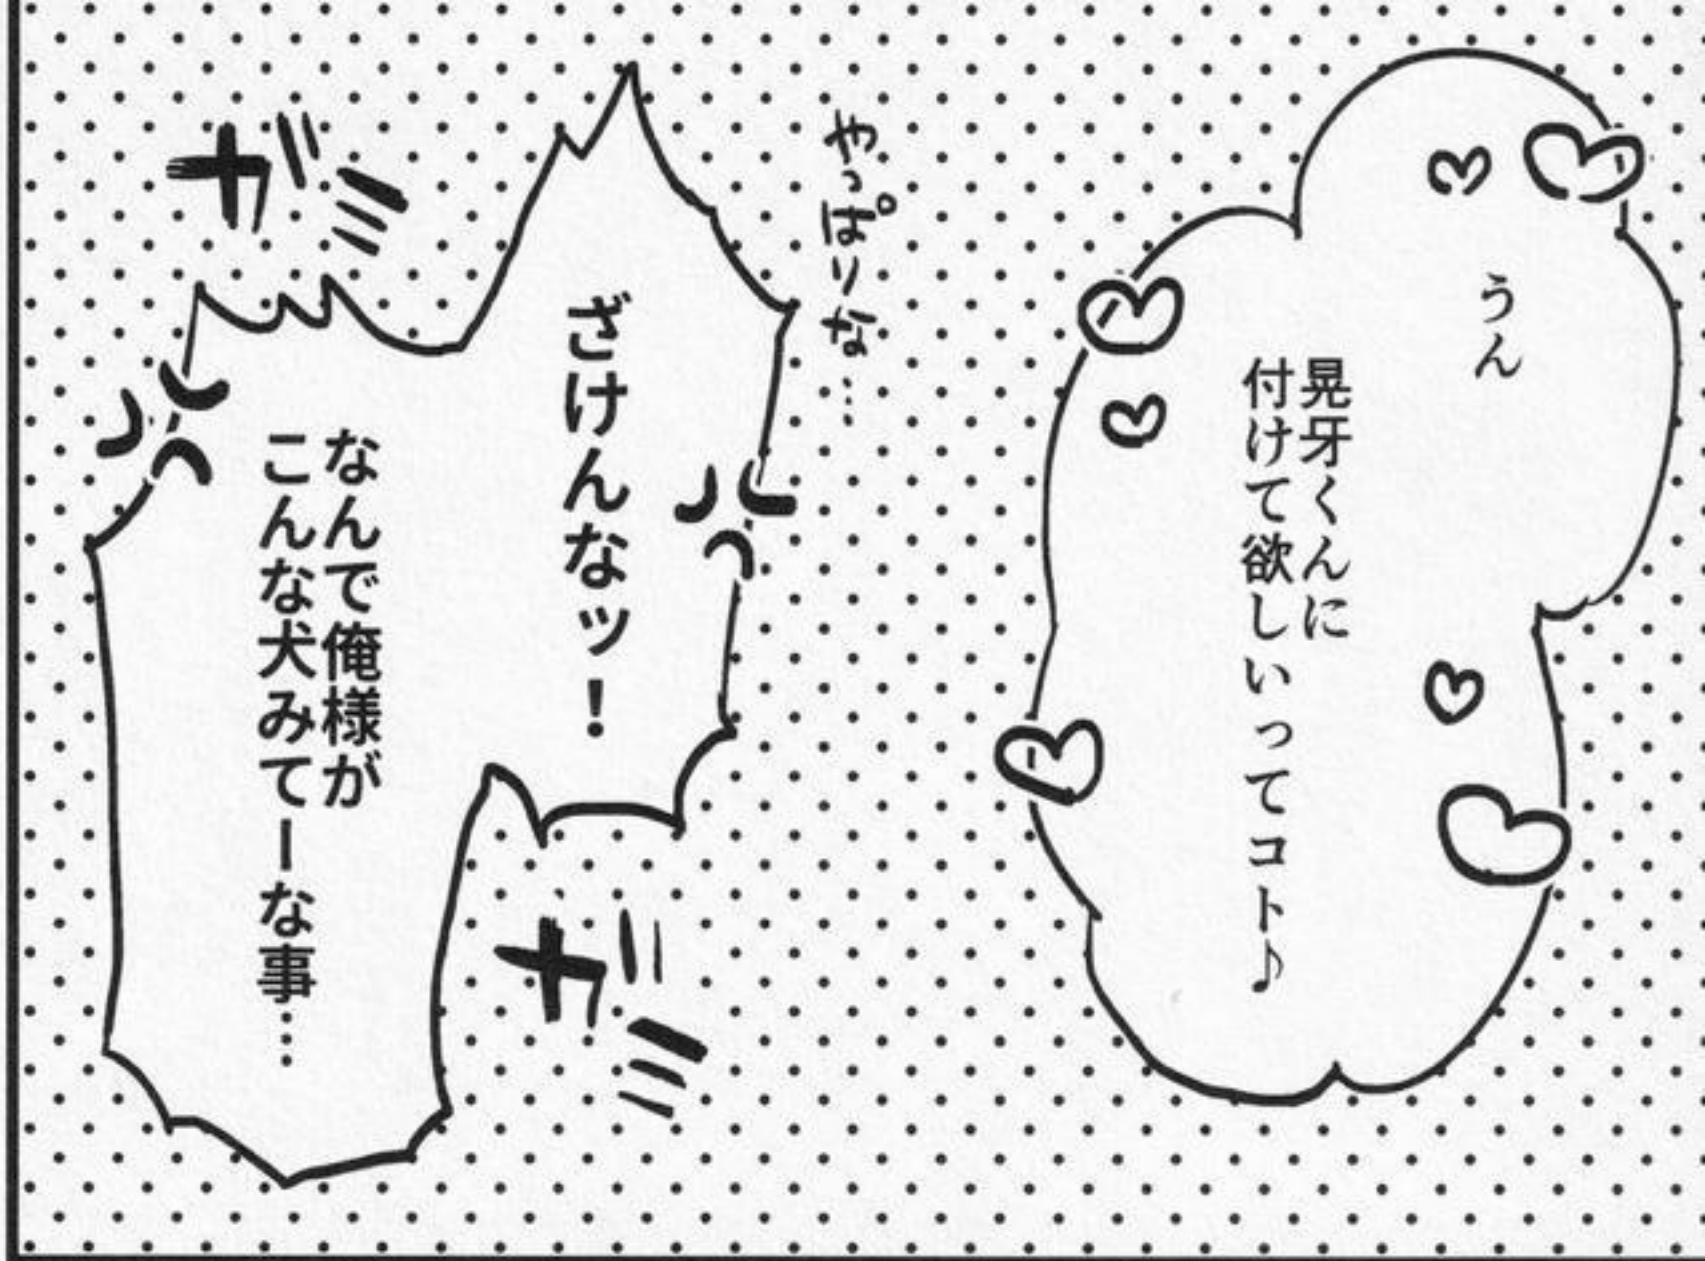 うん
晃牙くんに
付けて欲しいってコト♪
やっぱりな…
ざけんなッ！
なんで俺様が
こんな犬みてーな事……
ガミ
ガミ